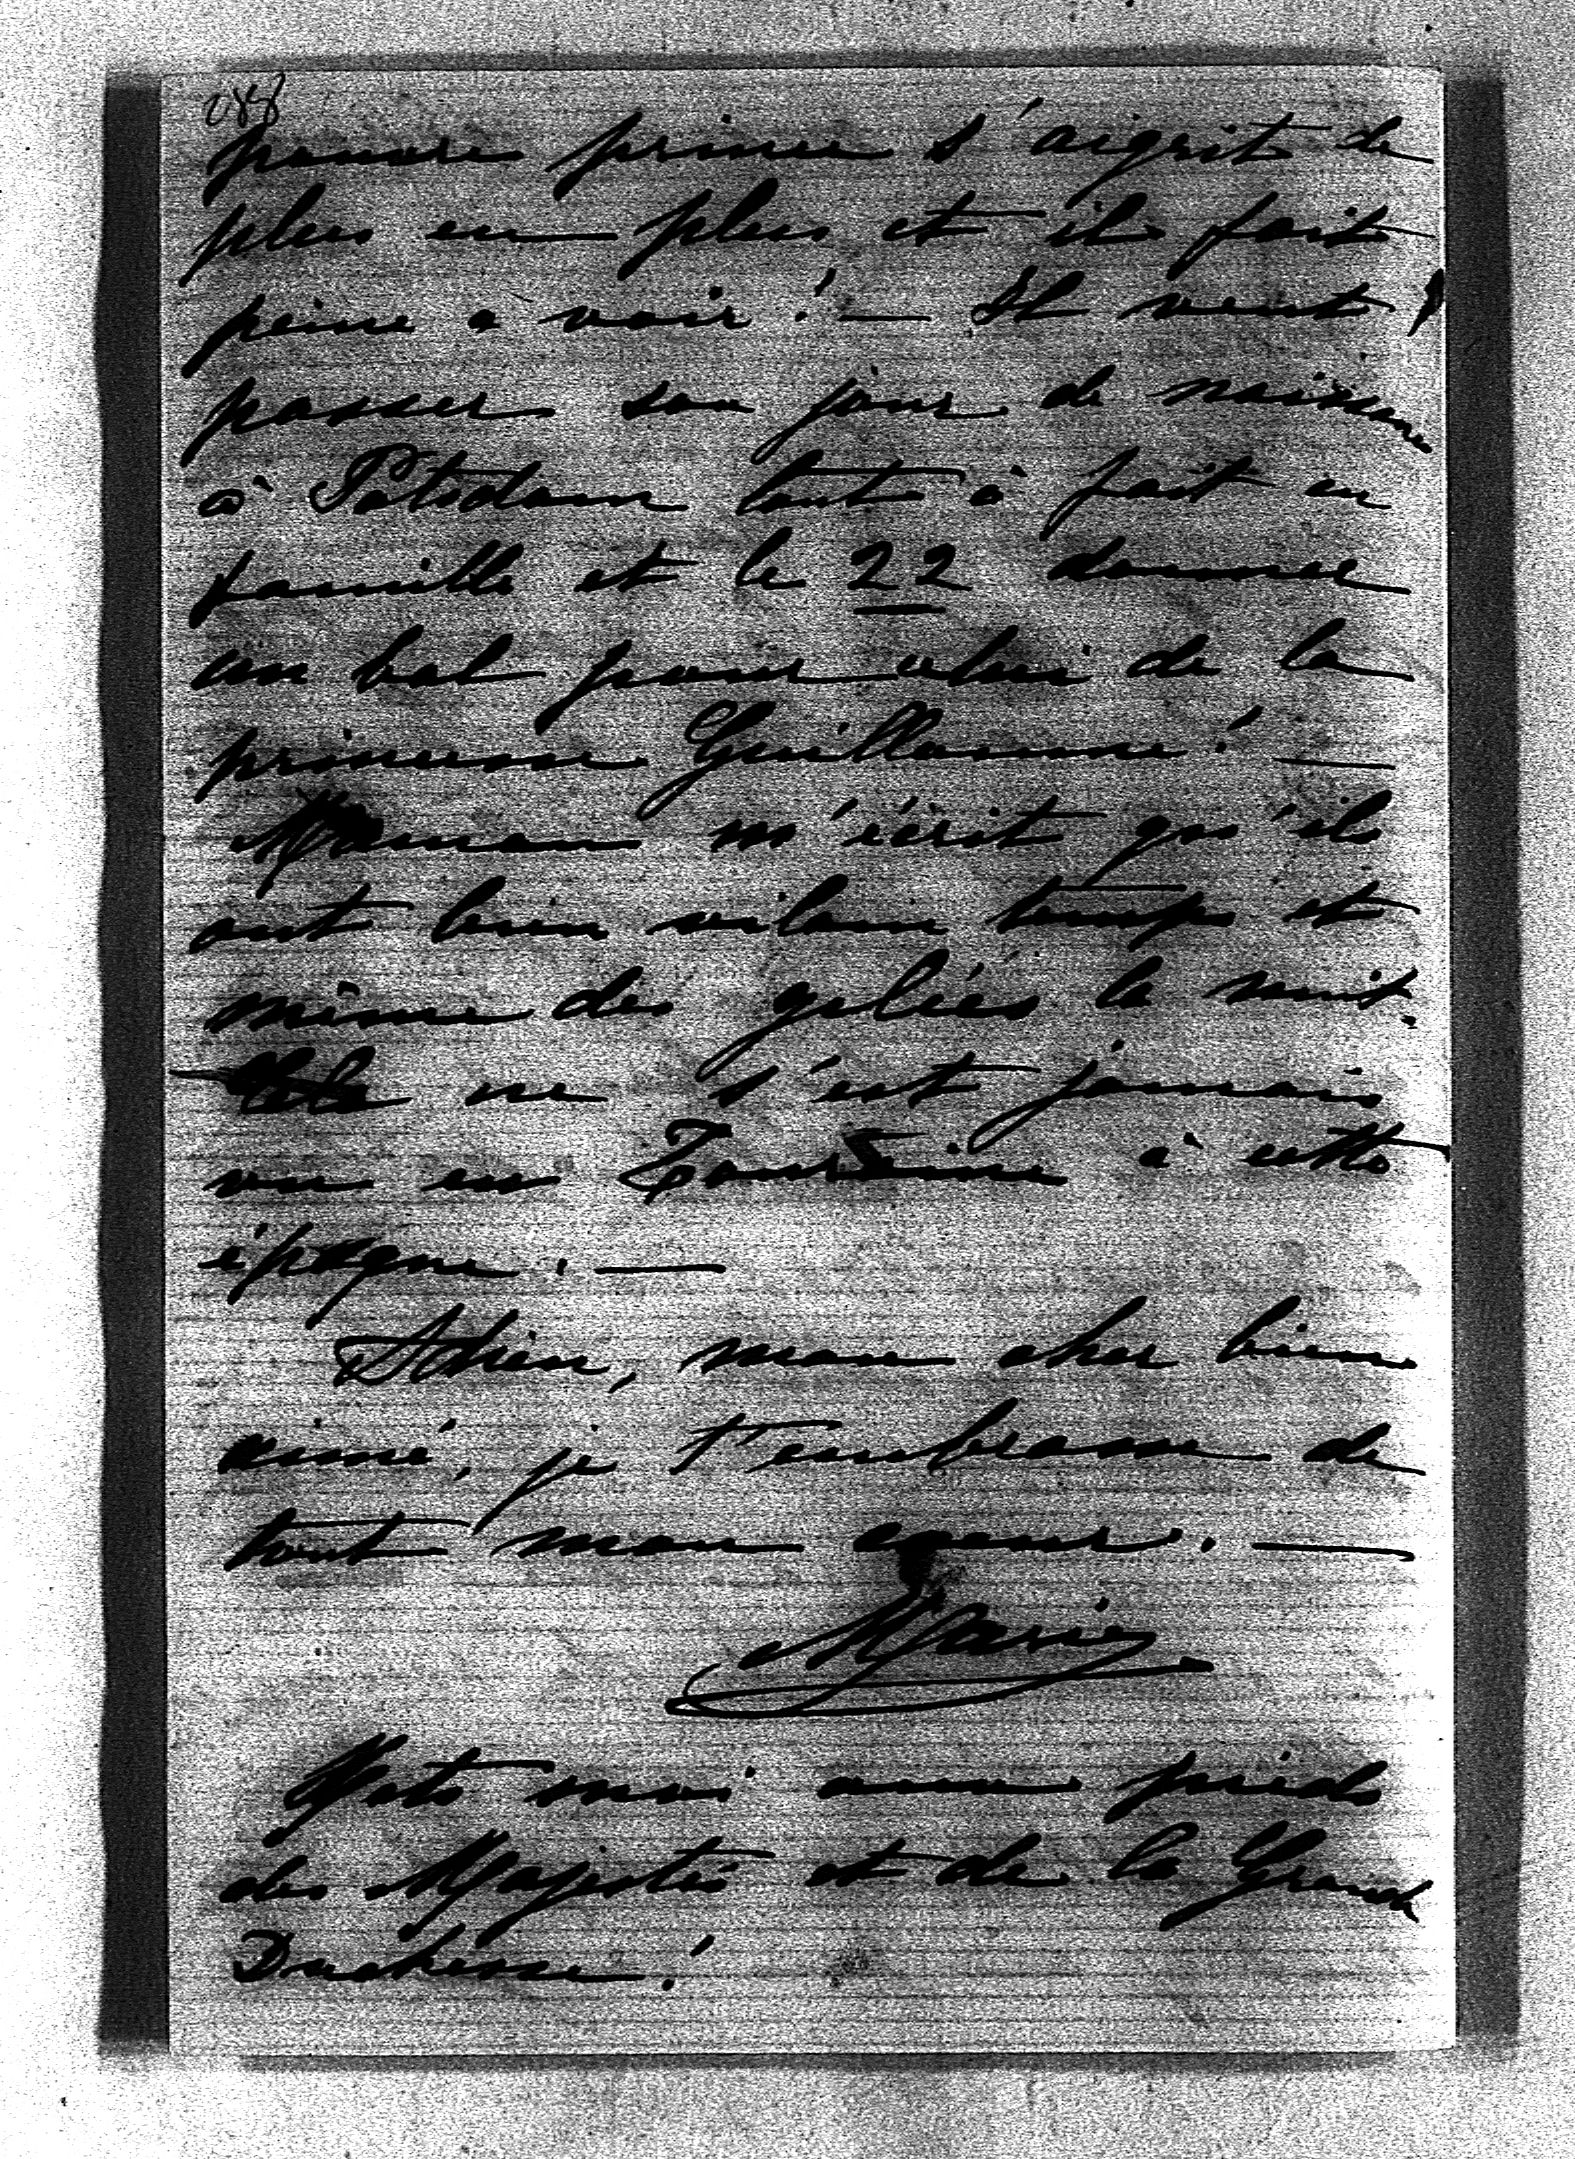 pauvre prince s'aigrit de
plus en plus et il fait
peine à voir ! — Il veut
passer son jour de naissance
à Potsdam tout à fait en
famille et le 22 donner
un bal pour celui de la
princesse Guillaume ! —
Maman m'écrit qu'ils
ont bien vilain temps et
même des gelées la nuit.
Cela ne s'est jamais
vu en Touraine à cette
époque. —
Adieu, mon cher bien
aimé, je t'embrasse de
tout mon coeur. —
Marie
Mets moi aux pieds
des Majestés et de la Grande
Duchesse !